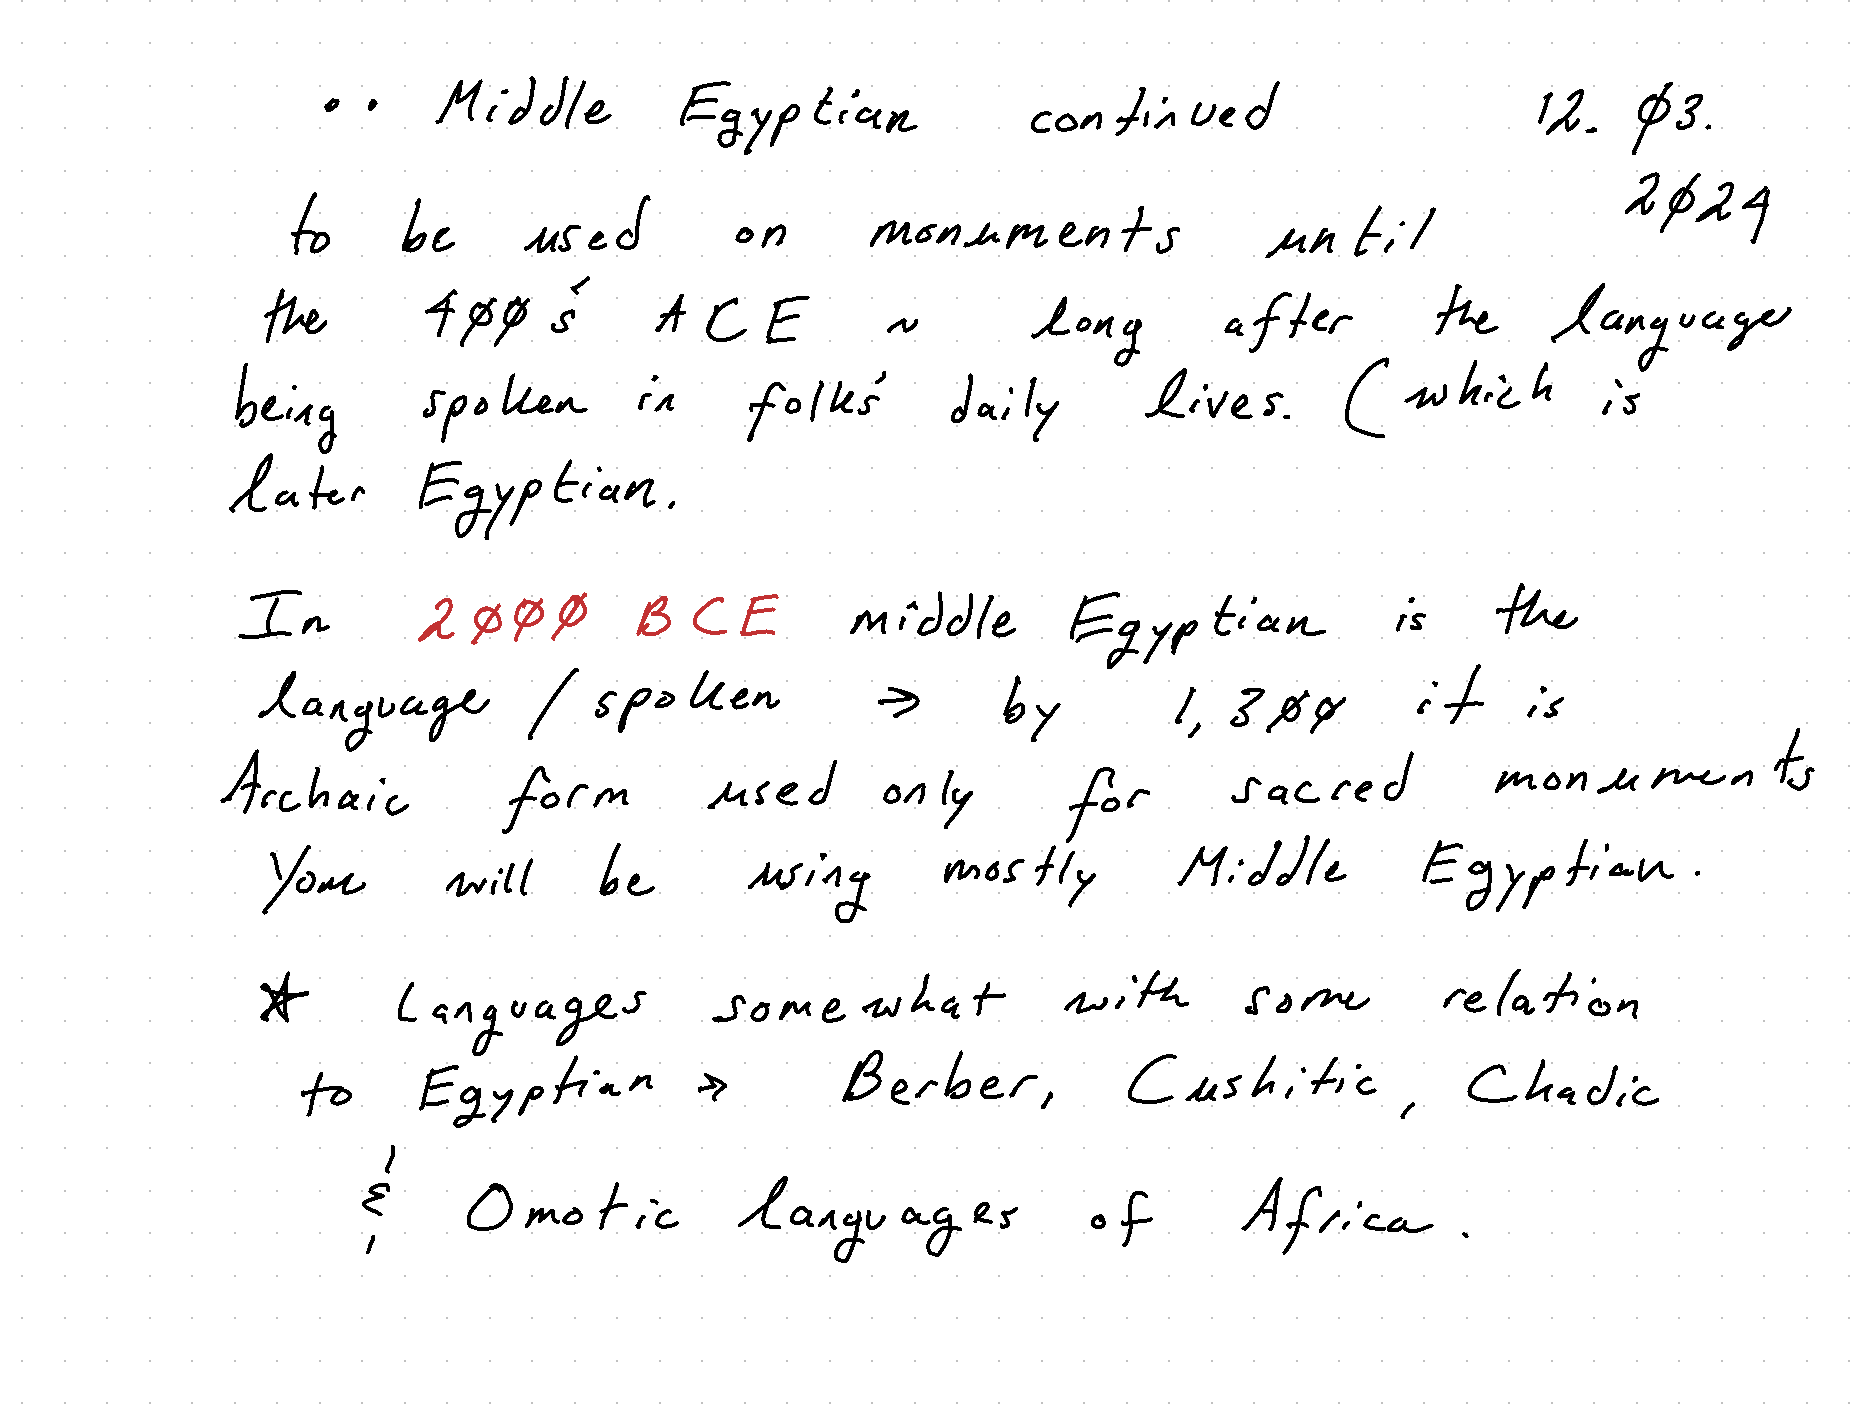 ·· Middle Egyptian continued 12. Ø3.
2Ø24
to be used on monuments until
the 4ØØ's ACE ~ long after the language
being spoken in folks' daily lives. (which is
later Egyptian.
In 2ØØØ BCE middle Egyptian is the
language / spoken → by 1,3ØØ it is
Archaic form used only for sacred monuments
You will be using mostly Middle Egyptian.
* Languages somewhat with some relation
to Egyptian → Berber, Cushitic, Chadic
& Omotic languages of Africa.